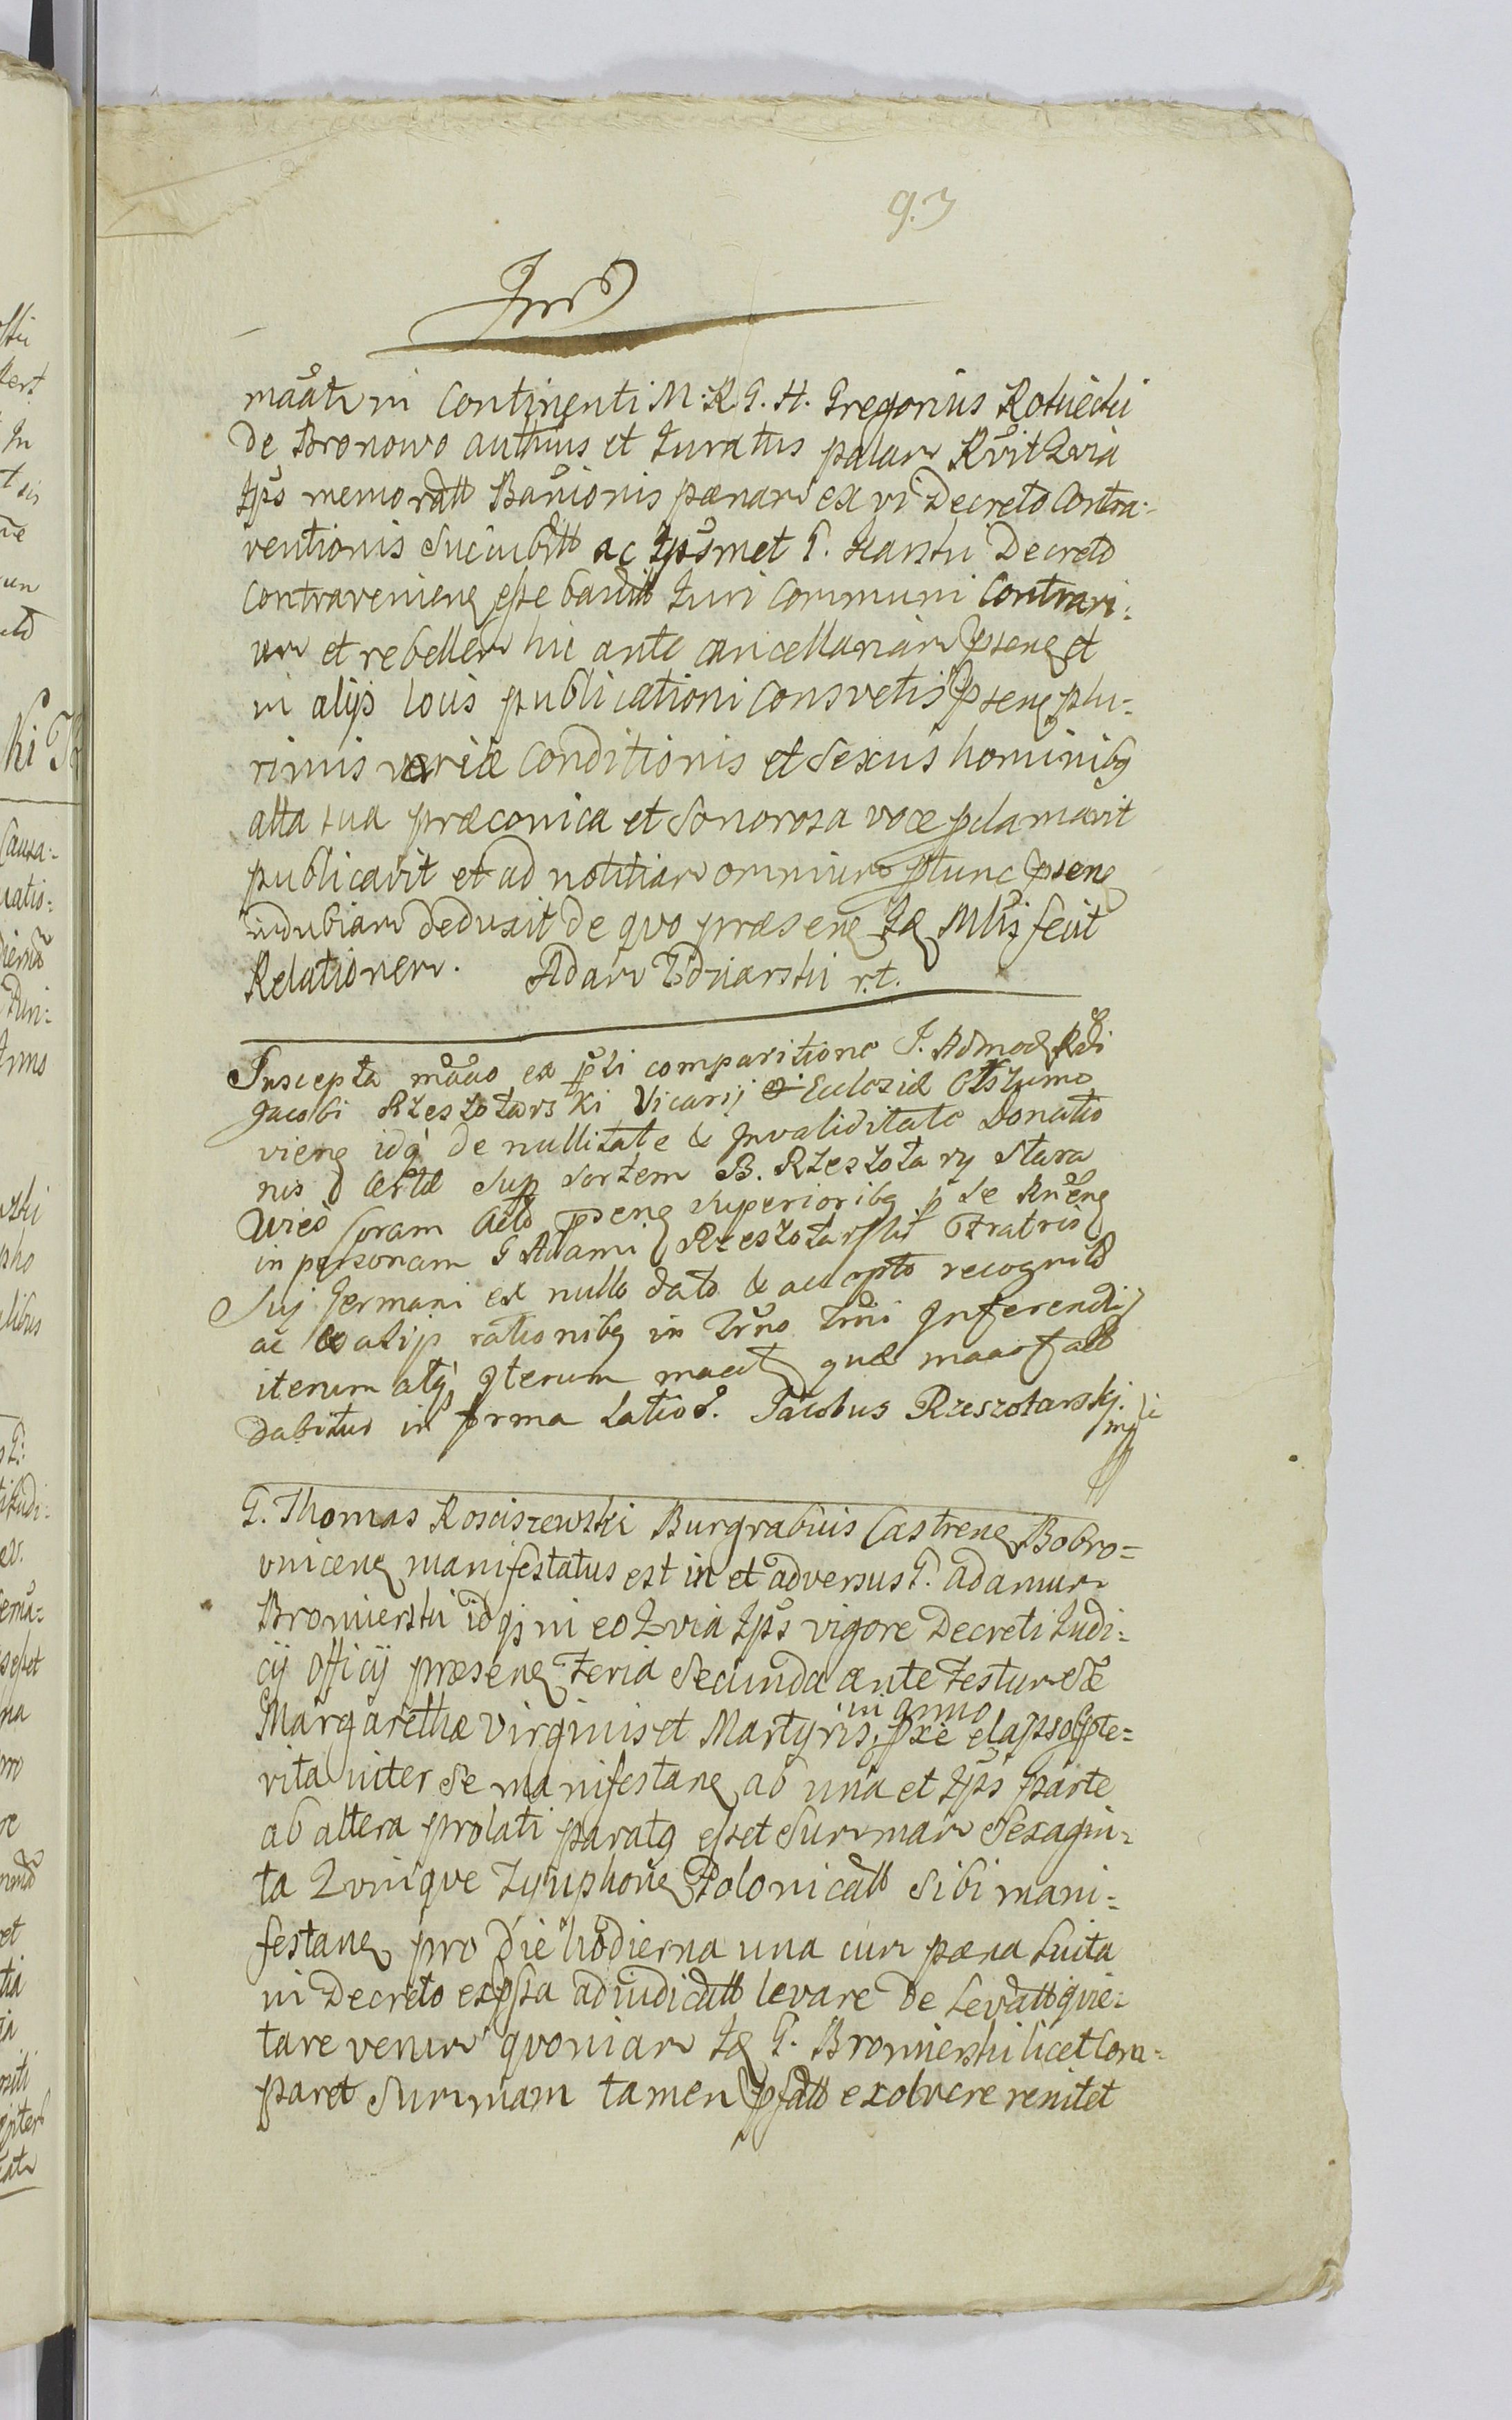 93
maat in Continenti M. R. G. H. Gregorius Rokicki
de Bronowo authus et Juratus palam Rvit Qvia
Jps memoratt Banionis pœnam ex vi Decreto Contra-
ventionis Sucubitt ac Jpsmet G. Decreto
Contraveniens esse banitt Juri Communi Contrari:
um et rebellem hic ante cancellariam psens et
in alijs locis publicationi Consvetis psens plu-
rimis variæ Conditionis et Sexus hominibq
alta sua præconica et Sonorosa voce pclamavit
publicavit et ad notitiam omnium ptunc psens
indubiam deduxit de qvo præsens Jq Mlis fecit
Relationem. Adam Zdziarski r.t.
Suscepta maao ex pli comparitione J. Admod Rdi
Jacobi Rzeszotarski Vicarij Ecclesiæ
viens idq de nullitate & Invaliditate Donatio
nis Sup Sortem B. Rzeszotary Stara
Wies Coram Actis psens Superioribq p se Rnens
in personam G Adami Rzeszotarski Fratris
Suj Germani ex nullo dato & accepto recognito
ac ex alijs rationibq in Trno Trni Inferendis
iterum atq Iterum maat quæ maao
dabitur in forma Latiori. Jacobus Rzeszotarskj.
mp
G. Thomas Rosciszewski Burgrabius Castrens Bobro=
vnicens manifestatus est in et adversus G. Adamum
Bromierski idq in eo Qvia Jps vigore Decreti Judi=
cij Officij præsens Feria Secunda ante Festum Stæ
in anno
Margarethæ Virginis et Martyris pxe elapso pte=
rita inter Se manifestans ab una et Jps parte
ab altera prolati paratq esset Summam Sexagin=
ta Qvinqve Tymphons Polonicatt Sibi mani=
festans pro die hodierna una cum pœna Luita
in Decreto expssa adiudicatt levare de Levatt qvie=
tare verum qvoniam Jq G. Bromierski licet Com=
paret Summam tamen pfatt exolvere renitet